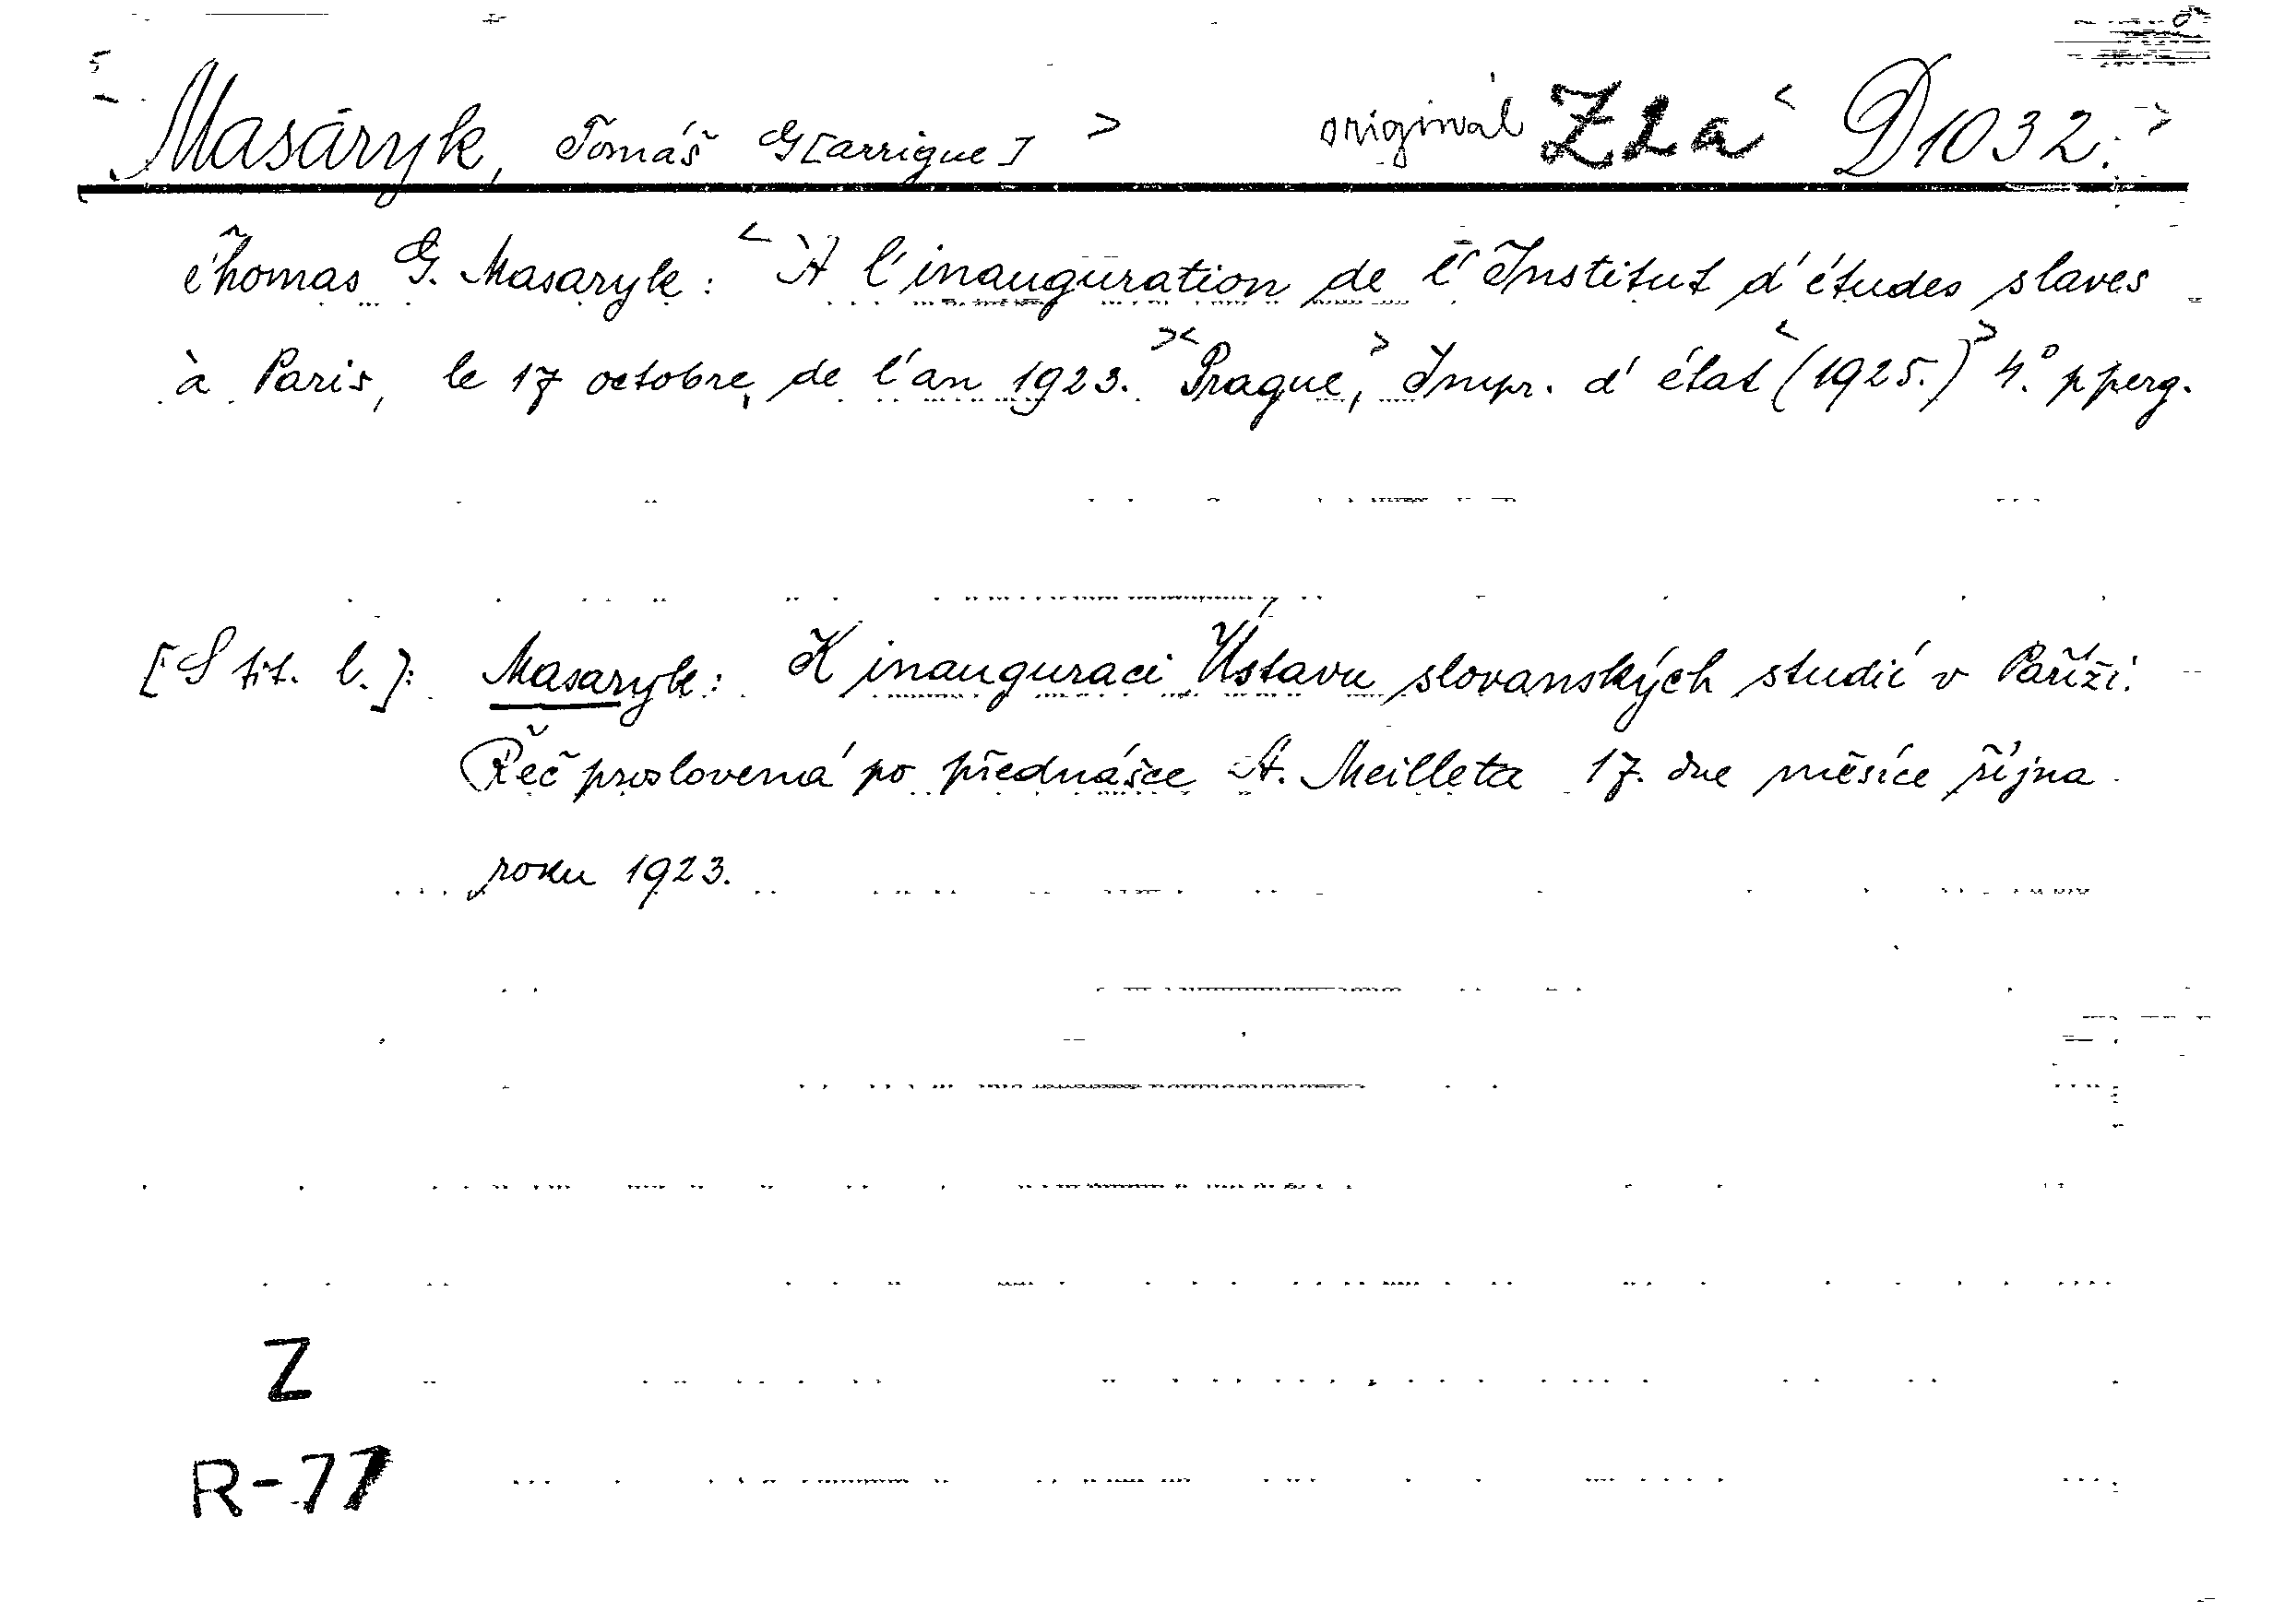 Masaryk, Tomáš G[arrigue] > originál Z2a < D 1032. >
Thomas G. Masaryk: < À l'inauguration de l'Institut d'études slaves
à Paris, le 17 octobre de l'an 1923. >< Prague, > Impr. d'état < (1925.) > 4.° pperg.
[S tit. l.]: Masaryk: K inauguraci Ústavu slovanských studií v Paříži.
Řeč proslovená po přednášce A. Meilleta 17. dne měsíce října
roku 1923.
Z
R-77